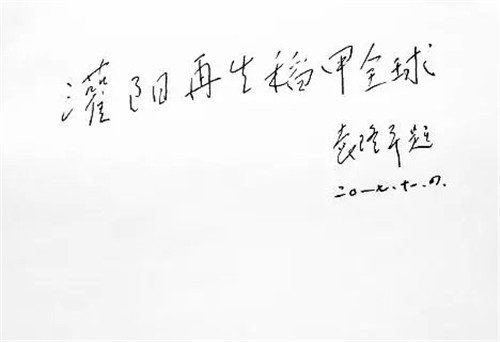 灌阳再生稻甲全球
袁隆平题
二〇一九.十一.四.